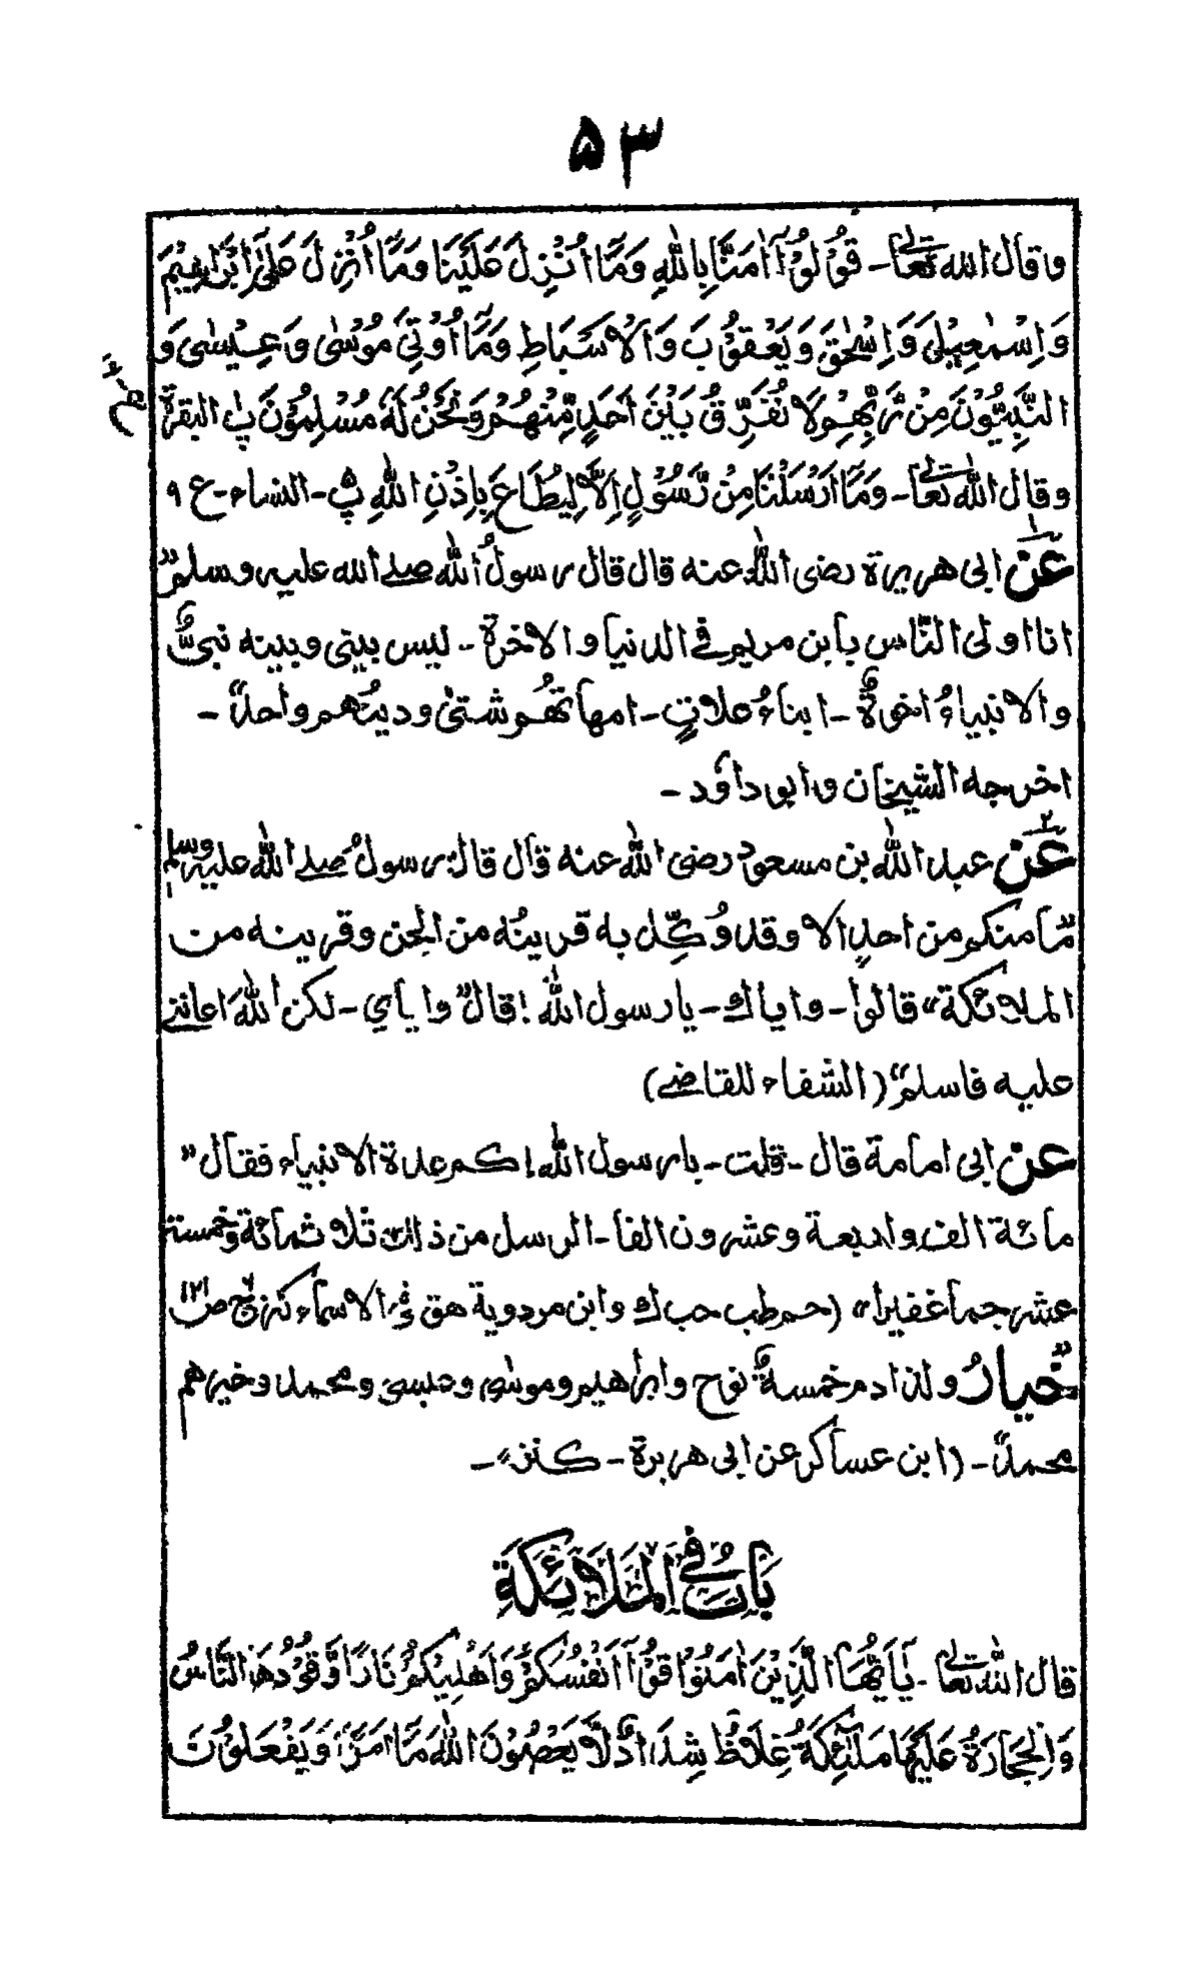 ۵۳
وقال الله تعالى ـ قُوْلُوْآ اٰمَنَّا بِاللّٰهِ وَمَآ اُنْزِلَ عَلَيْنَا وَمَآ اُنْزِلَ عَلٰٓى اِبْرَاهِيْمَ
وَاِسْمٰعِيْلَ وَاِسْحٰقَ وَيَعْقُوْبَ وَالْاَسْبَاطِ وَمَآ اُوْتِيَ مُوْسٰى وَعِيْسٰى وَ
النَّبِيُّوْنَ مِنْ رَّبِّهِمْ لَا نُفَرِّقُ بَيْنَ اَحَدٍ مِّنْهُمْ وَنَحْنُ لَهٗ مُسْلِمُوْنَ پ البقرة
وقال الله تعالى ـ وَمَآ اَرْسَلْنَا مِنْ رَّسُوْلٍ اِلَّا لِيُطَاعَ بِاِذْنِ اللّٰهِ پ ـ النساء ـ ع ۹
عن ابى هريرة رضى الله عنه قال قال رسولُ الله صلے الله عليه وسلم "
انا اولى النّاس بابن مريم فے الدنيا والاخرة ـ ليس بينى وبينه نبىٌّ
والانبياءُ اخوةٌ ـ ابناءُ علاتٍ ـ امهاتهُم شتىٰ ودينُهم واحدٌ" ـ
اخرجه الشيخان وابو داؤد ـ
۲ عن عبد الله بن مسعود رضى الله عنه قال قال رسولُ صلے الله عليه وسلم
"مّا منكم من احدٍ الا وقد وُكِّل به قرينُه من الجن وقرينه من
الملائكة" قالوا ـ واياك ـ يارسول الله! قال" واياي ـ لكن اللهَ اعاننے
عليه فاسلم" (الشفاء للقاضے)
عن ابى امامة قال ـ قلت ـ يارسول الله! كم عدة الانبياء فقال "
مائة الف واربعة وعشرون الفا ـ الرسل من ذلك ثلاثمائة وخمسة
عشر جما غفيرا" (حم طب حب ك وابن مردوية هق فے الاسماء كنز ج ۶ ص ۱۲۱
"خيارُ ولد ادم خمسةٌ نوح وابراهيم وموسٰى وعيسى ومحمد وخيرهم
محمد" ـ (ابن عساكر عن ابى هريرة ـ كنز" ـ
بَابٌ فِي الْمَلَائِكَةِ
قال الله تعالى ـ يٰٓاَيُّهَا الَّذِيْنَ اٰمَنُوْا قُوْٓا اَنْفُسَكُمْ وَاَهْلِيْكُمْ نَارًا وَّقُوْدُهَا النَّاسُ
وَالْحِجَارَةُ عَلَيْهَا مَلٰٓئِكَةٌ غِلَاظٌ شِدَادٌ لَّا يَعْصُوْنَ اللّٰهَ مَآ اَمَرَهُمْ وَيَفْعَلُوْنَ